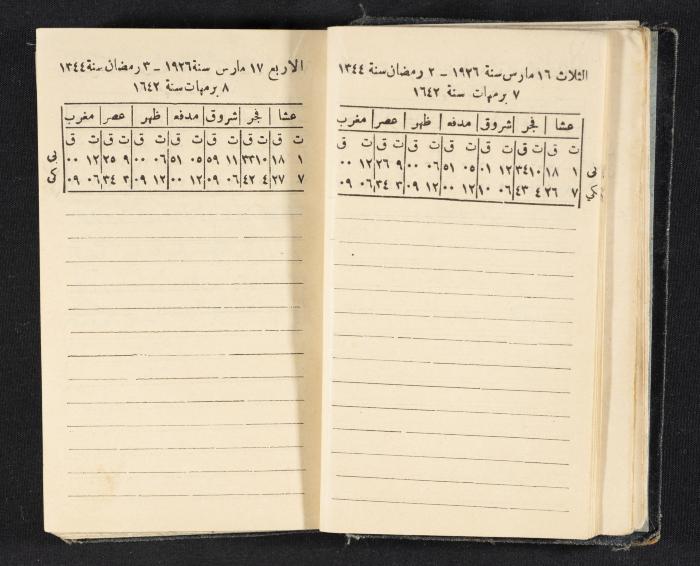 الثلاث ١٦ مارس سنة ١٩٢٦ ــ ٢ رمضان سنة ١٣٤٤
٧ برمهات سنة ١٦٤٢
عشا فجر شروق مدفه ظهر عصر مغرب
ت ق ت ق ت ق ت ق ت ق ت ق ت ق
بي ١ ١٨ ١٠ ٣٤ ١٢ ٠١ ٠٥ ٥١ ٠٦ ٠٠ ٩ ٢٦ ١٢ ٠٠
كي ٧ ٢٦ ٤ ٤٣ ٠٦ ١٠ ١٢ ٠٠ ١٢ ٠٩ ٣ ٣٤ ٠٦ ٠٩
الاربع ١٧ مارس سنة ١٩٢٦ ــ ٣ رمضان سنة ١٣٤٤
٨ برمهات سنة ١٦٤٢
عشا فجر شروق مدفه ظهر عصر مغرب
ت ق ت ق ت ق ت ق ت ق ت ق ت ق
بي ١ ١٨ ١٠ ٣٣ ١١ ٥٩ ٠٥ ٥١ ٠٦ ٠٠ ٩ ٢٥ ١٢ ٠٠
كي ٧ ٢٧ ٤ ٤٢ ٠٦ ٠٩ ١٢ ٠٠ ١٢ ٠٩ ٣ ٣٤ ٠٦ ٠٩